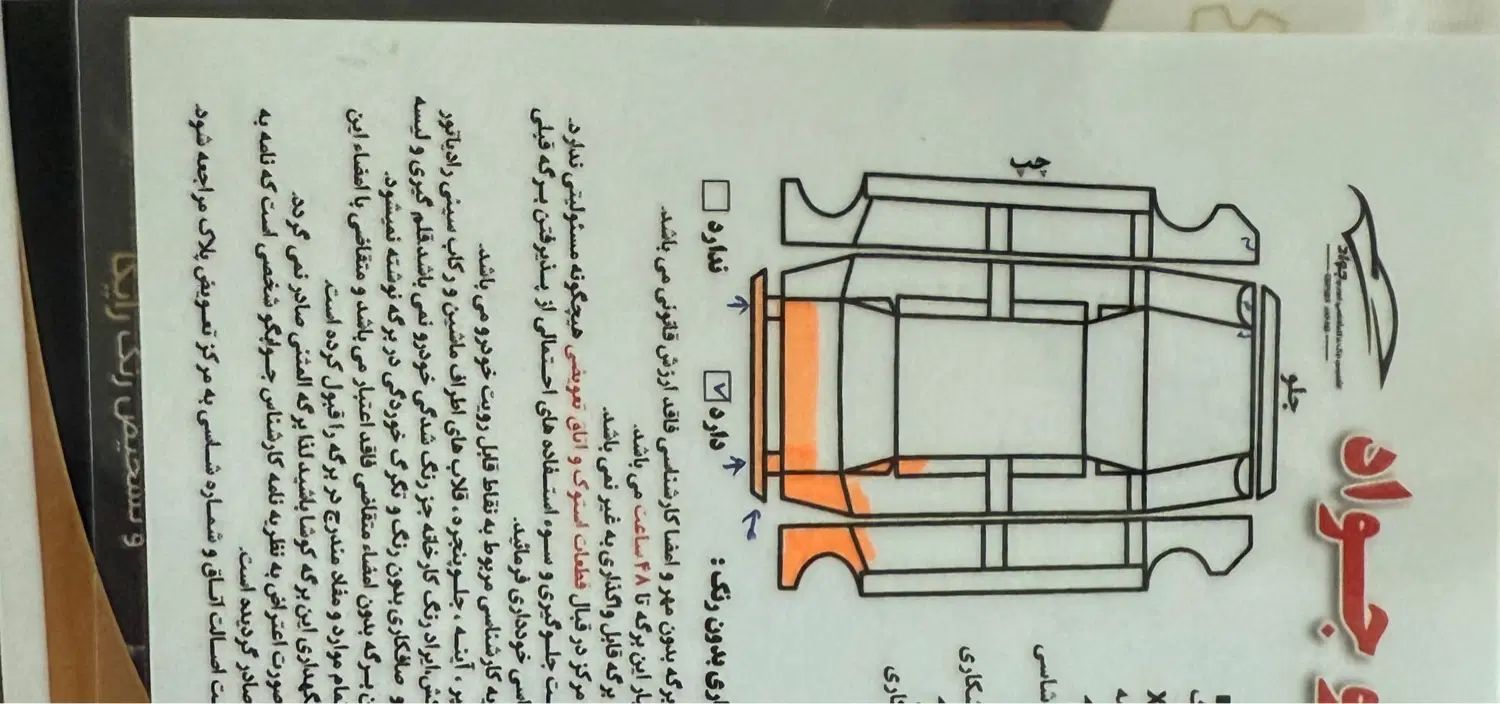 جواد
جلو
شاسی
بدون رنگ :
دارد
ندارد
برگه بدون مهر و امضا کارشناسی فاقد ارزش قانونی می باشد.
این برگه تا ۴۸ ساعت می باشد.
برگه قابل واگذاری به غیر نمی باشد.
مرکز در قبال قطعات استوک و اتاق تعویضی هیچگونه مسئولیتی ندارد.
جلوگیری و سوء استفاده های احتمالی از پذیرفتن برگه قبلی
خودداری فرمائید.
به کارشناسی مربوط به نقاط قابل رویت خودرو می باشد.
آینه ، جلوپنجره ، قلاب های اطراف ماشین و رکاب سینی رادیاتور
ایراد رنگ کارخانه جز رنگ شدگی خودرو نمی باشد.قلم گیری و لیسه
و صافکاری بدون رنگ و تگرگ خوردگی در برگه نوشته نمیشود.
برگه بدون امضاء متقاضی فاقد اعتبار می باشد و متقاضی با امضاء این
موارد و مفاد مندرج در برگه را قبول کرده است.
نگهداری این برگه کوشا باشید لذا برگه المثنی صادر نمی گردد.
صورت اعتراض به نظریه نامه کارشناس جوابگو شخصی است که نامه به
صادر گردیده است.
اصالت اتاق و شماره شاسی به مرکز تعویض پلاک مراجعه شود.
و تشخیص رنگ